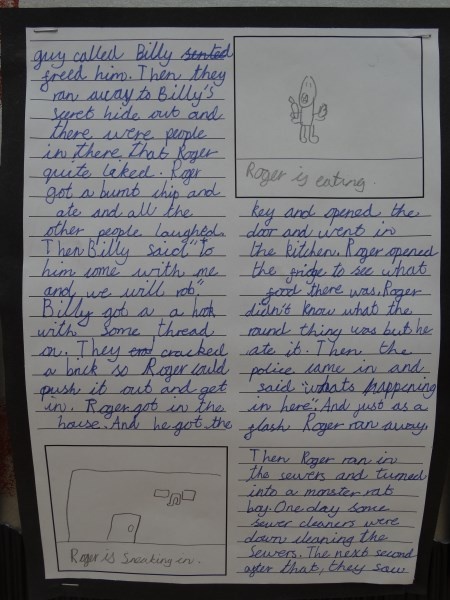 guy called Billy sented
freed him. Then they
ran away to Billy's
secret hide out and
there were people
in there that Roger
quite laked. Roger
got a burnt chip and
ate and all the
other people laughed.
Then Billy said "to
him come with me
and we will rob".
Billy got a a hook
with some thread
on. They cracked
a brick so Roger could
push it out and get
in. Roger got in the
house. And he got the
Roger is sneaking in.
Roger is eating.
key and opened the
door and went in
the kitchen. Roger opened
the fridge to see what
food there was. Roger
didn't know what the
round thing was but he
ate it. Then the
police came in and
said "whats happening
in here". And just as a
flash Roger ran away.
Then Roger ran in
the sewers and turned
into a monster rat
boy. One day some
sewer cleaners were
down cleaning the
sewers. The next second
after that, they saw